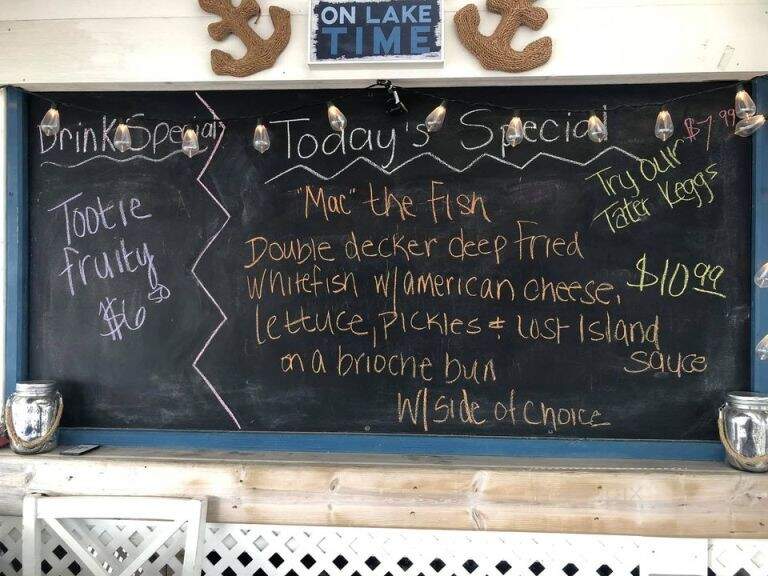 ON LAKE
TIME
Drink Special
Tootie
fruity
$6 50
Today's Special
"Mac" the fish
Double decker deep fried
whitefish w/american cheese,
lettuce, pickles & Lost Island
sauce
on a brioche bun
w/side of choice
$7.99
Try our
Tater Keggs
$10.99